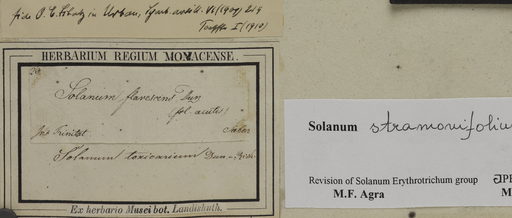 fide O. E. Schulz in Urban, Symb. antill. VI (1909) 219
I (1910)
HERBARIUM REGIUM MONACENSE.
Solanum flavescens Dun
(fol. acutis)
Ins. Trinitat. Sieber
Solanum toxicarium Dun
Ex herbario Musei bot. Landishuth.
Solanum stramonifoliu
Revision of Solanum Erythrotrichum group
M.F. Agra